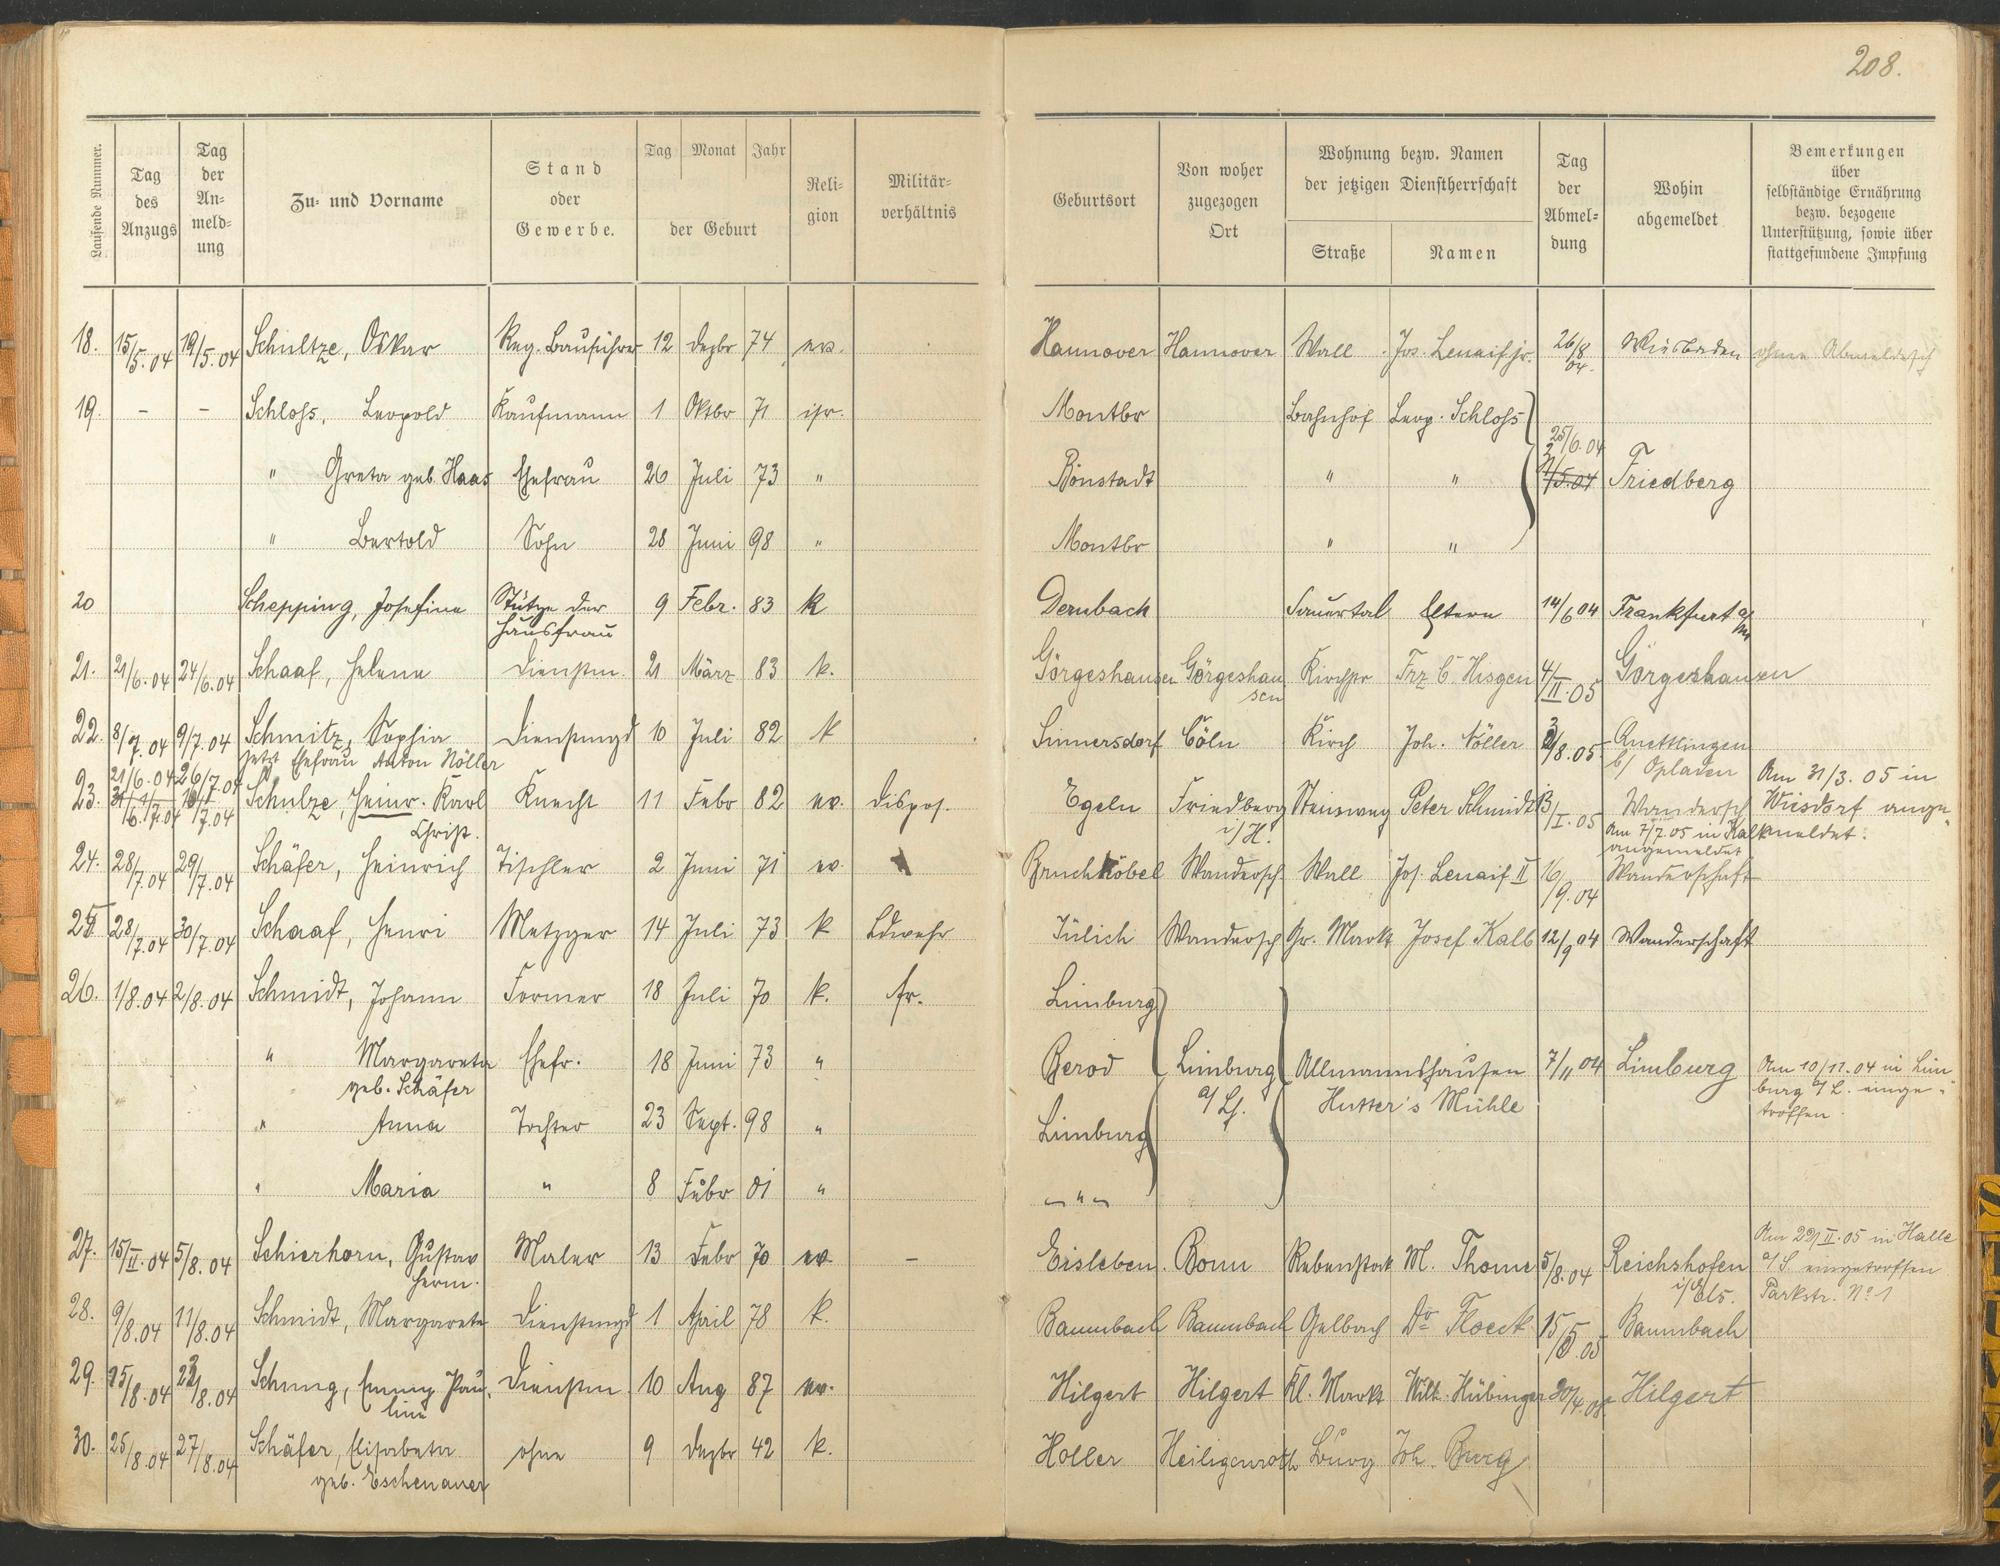 208.
Laufende Nummer.
Tag des Anzugs
Tag der An-meld-ung
Zu- und Vorname
Stand oder Gewerbe.
Tag Monat Jahr der Geburt
Reli-gion
Militär-verhältnis
Geburtsort
Von woher zugezogen Ort
Wohnung bezw. Namen der jetzigen Dienstherrschaft
Straße Namen
Tag der Abmel-dung
Wohin abgemeldet
Bemerkungen über selbständige Ernährung bezw. bezogene Unterstützung, sowie über stattgefundene Impfung
18. 15/5.04 19/5.04 Schultze, Oskar Reg. Bauführer 12 Dezbr 74 ev. Hannover Hannover Wall Jos. Lenaif jr. 26/8 04. Wiesbaden ohne Abmeldesch
19. - - Schloss, Leopold Kaufmann 1 Oktbr 71 isr. Montbr Bahnhof Leop. Schloss
" Greta geb. Haas Ehefrau 26 Juli 73 " Bönstadt " " 25/6.04 Friedberg
" Bertold Sohn 28 Juni 98 " Montbr " "
20 Schepping, Josefine Stütze der Hausfrau 9 Febr. 83 k Dernbach Sauertal Eltern 14/6 04 Frankfurt a/M
21. 21/6.04 24/6.04 Schaaf, Helene Dienstm. 21 März 83 k. Görgeshausen Görgeshausen Kirchstr Frz C. Hisgen 4/II.05 Görgeshausen
22. 8/7.04 9/7.04 Schmitz, Sophia Dienstmgd 10 Juli 82 k Sinnersdorf Cöln Kirch Joh. Nöller 3/8.05 Quettlingen b/ Opladen
jetzt Ehefrau Anton Nöller
23. 21/6.04 26/7.04 Schulze, Heinr. Karl Christ. Knecht 11 Febr 82 ev. Dispos. Egeln Friedberg i/H. Steinweg Peter Schmidt 13/I.05 Wandersch Am 31/3.05 in Wiesdorf ange-meldet.
Am 7/7.05 in Kalk angemeldet
24. 28/7.04 29/7.04 Schäfer, Heinrich Tischler 2 Juni 71 ev. Bruchköbel Wandersch Wall Jos. Lenaif II 16/9.04 Wanderschaft
25 28/7.04 30/7.04 Schaaf, Henri Metzger 14 Juli 73 k Ldwehr Jülich Wandersch Gr. Markt Josef Kalb 12/9 04 Wanderschaft
26. 1/8.04 2/8.04 Schmidt, Johann Former 18 Juli 70 k. fr. Limburg
" Margareta geb. Schäfer Ehefr. 18 Juni 73 " Berod Limburg a/Lh. Allmannshausen Hutter's Mühle 7/11 04 Limburg Am 10/11.04 in Lim burg a/L. einge-troffen.
" Anna Tochter 23 Sept. 98 " Limburg
" Maria " 8 Febr 01 " "
27. 15/II.04 5/8.04 Schierhorn, Gustav Herm. Maler 13 Febr 70 ev - Eisleben. Bonn Rebenstock M. Thome 5/8.04 Reichshofen i/Els. Am 22/II.05 in Halle a/S eingetroffen Parkstr. No 1
28. 9/8.04 11/8.04 Schmidt, Margareta Dienstmgd 1 April 78 k. Baumbach Baumbach Gelbach Dr Floeck 15/5.05 Baumbach
29. 15/8.04 22/8.04 Schung, Emmy Pau-line Dienstm. 10 Aug 87 ev. Hilgert Hilgert Kl. Markt Wilh. Hübinger Hilgert
30. 25/8.04 27/8.04 Schäfer, Elisabeta geb. Eschenauer ohne 9 Dezbr 42 k. Holler Heiligenroth Burg Joh. Burg